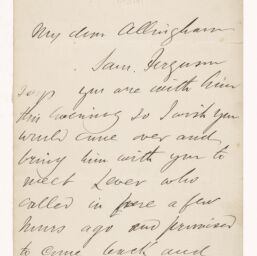 My dear Allingham
Sam. Ferguson
says you are with him
this evening so I wish you
would come over and
bring him with you to
meet Lever who
called in here a few
hours ago and promised
to come back and